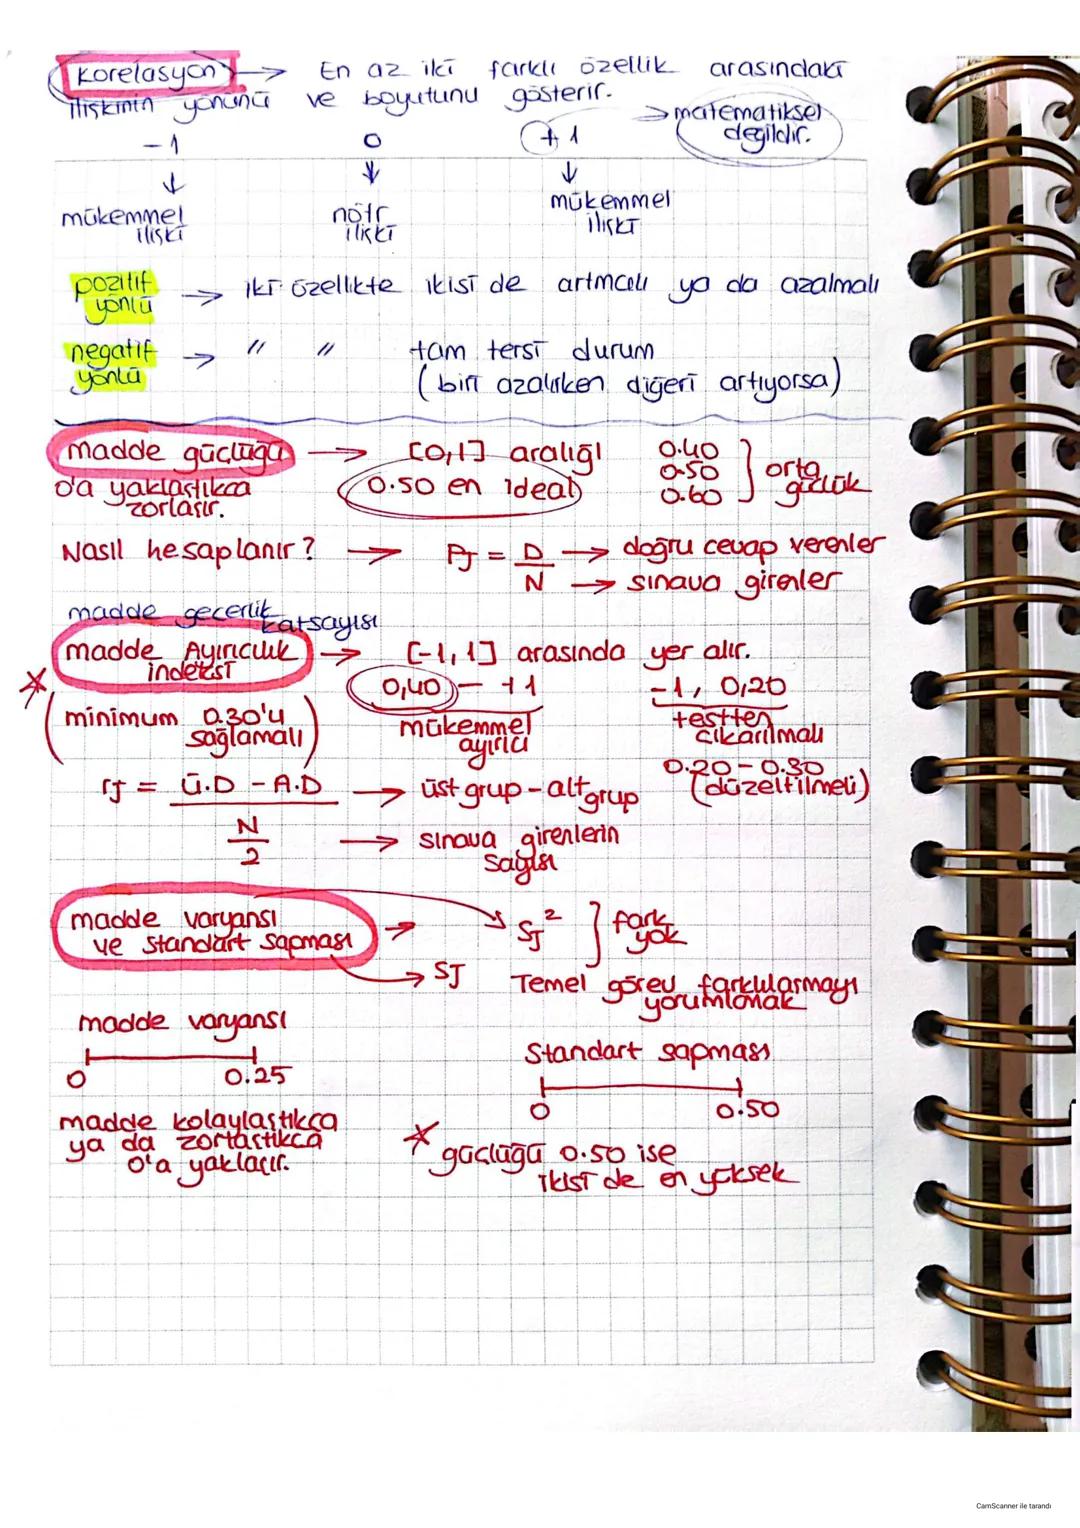 korelasyon → En az iki farklı özellik arasındaki
ilişkinin yönünü ve boyutunu gösterir.
-1 0 +1 → matematiksel
değildir.
↓ ↓ ↓
mükemmel ilişki nötr ilişki mükemmel ilişki
pozitif yönlü → iki özellikte ikisi de artmalı ya da azalmalı
negatif yönlü → " " tam tersi durum
(biri azalırken diğeri artıyorsa)
madde güçlüğü → [0,1] aralığı 0.40
0'a yaklaştıkça 0.50 en ideal 0.50 } orta güçlük
zorlaşır. 0.60
Nasıl hesaplanır? → Pj = D → doğru cevap verenler
N → sınava girenler
madde geçerlik katsayısı
madde Ayırıcılık indeksi → [-1, 1] arasında yer alır.
0,40 - +1 -1, 0,20
(minimum 0.30'u mükemmel testten
sağlamalı) ayırıcı çıkarılmalı
0.20 - 0.30
(düzeltilmeli)
rj = Ü.D - A.D → üst grup - alt grup
N
2 → sınava girenlerin
sayısı
madde varyansı → Sj² } fark
ve standart sapması yok
→ Sj Temel görev farklılaşmayı
yorumlamak
madde varyansı
0 0.25
Standart sapması
0 0.50
madde kolaylaştıkça
ya da zorlaştıkça
0'a yaklaşır.
* güçlüğü 0.50 ise
ikisi de en yüksek
CamScanner ile tarandı